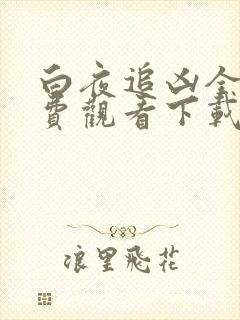 白夜追凶全
費觀看下載
浪里飛花